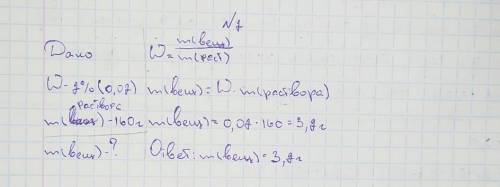 №2
Дано W = m(вещ)/m(раст)
W - 2% (0,02) m(вещ) = W · m(раствора)
m(раствора) - 160г m(вещ) = 0,02 · 160 = 3,2г
m(вещ) - ? Ответ: m(вещ) = 3,2г